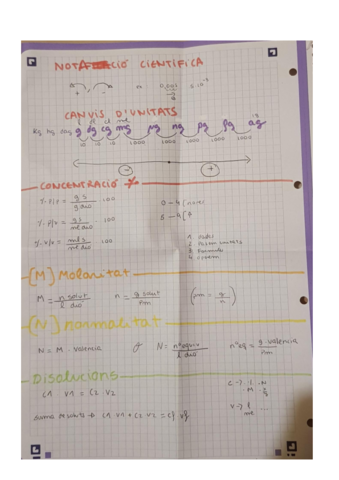 NOTACIÓ CIENTÍFICA
+ - ex 0,005 5·10⁻³
CANVIS D'UNITATS
dl cl ml
Kg hg dag g dg cg mg µg ng pg fg ag
10 10 10 1000 1000 1000 1000 1000
- +
CONCENTRACIÓ %
% p/p = g s / g dis · 100
% p/v = g s / ml dis · 100
% v/v = ml s / ml dis · 100
(M) Molaritat
M = n solut / L dis n = g solut / Pm (Pm = g / n)
(N) normalitat
N = M · valencia N = nº equiv / L dis nº eq = g · valencia / Pm
Disolucions
C1 V1 = C2 V2
C → % N
M
V → l
ml ...
C1 V1 + C2 V2 = Cf Vf